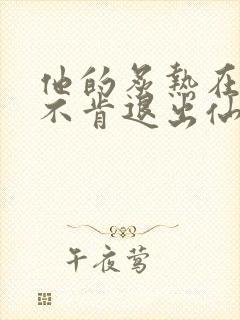 他的炙热在
不肯退出仙
午夜莺